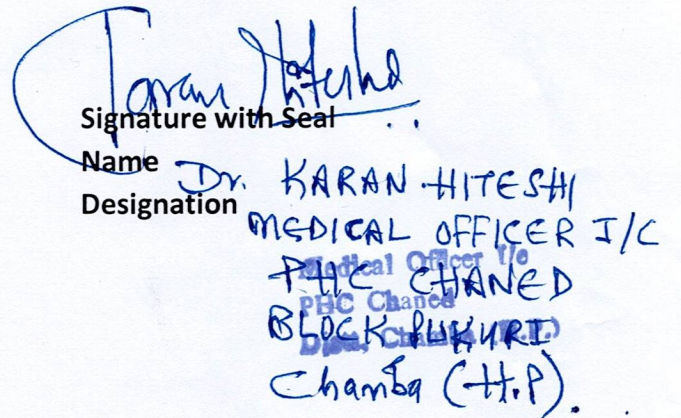 Karan Hiteshi
Signature with Seal
Name Dr. KARAN HITESHI
Designation
MEDICAL OFFICER I/C
PHC CHANED
BLOCK PUKHRI
Chamba (H.P).
Medical Officer I/c
PHC Chaned
Distt. Chamba (H.P.)